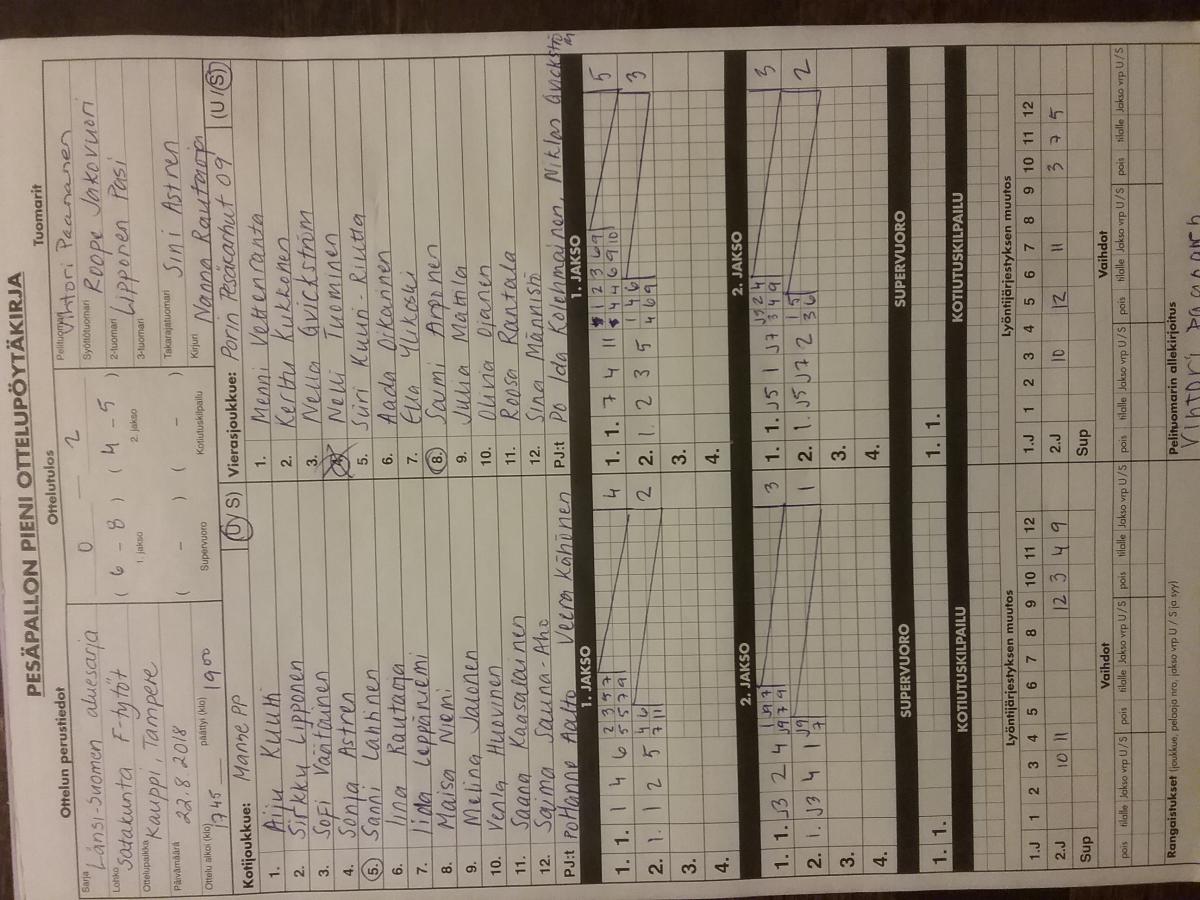 PESÄPALLON PIENI OTTELUPÖYTÄKIRJA
Ottelun perustiedot
Sarja Länsi-Suomen aluesarja
Lohko Satakunta F-tytöt
Ottelupaikka Kauppi, Tampere
Päivämäärä 22.8.2018
Ottelu alkoi (klo) 1745 päättyi (klo) 1900
Ottelutulos
0 2
( 6 - 8 ) ( 4 - 5 )
1. jakso 2. jakso
( - ) ( - )
Supervuoro Kotiutuskilpailu
Tuomarit
Pelituomari Vihtori Paananen
Syöttötuomari Roope Jakovuori
2-tuomari Lipponen Pasi
3-tuomari
Takarajatuomari Sini Astren
Kirjuri Nanna Rautaoja
Kotijoukkue: Manse PP (U/S)
1. Aiju Kuuhi
2. Sirkku Lipponen
3. Sofi Väätäinen
4. Sonja Astren
5. Sanni Lahtinen
6. Iina Rautaoja
7. Iida Leppäniemi
8. Maisa Niemi
9. Melina Jalonen
10. Venla Huovinen
11. Saana Kaasalainen
12. Saima Sauna-Aho
PJ:t Pohanne Aalto Veera Kähönen
Vierasjoukkue: Porin Pesäkarhut 09 (U/S)
1. Menni Vettenranta
2. Kerttu Kukkonen
3. Nella Qvickström
4. Nelli Tuominen
5. Siiri Kuuri-Riutta
6. Aada Oikarinen
7. Ella Ylikoski
8. Saimi Arponen
9. Julia Mattila
10. Olivia Ojanen
11. Roosa Rantala
12. Sina Männistö
PJ:t Po Ida Kolehmainen, Niklas Qvickström
1. JAKSO
1. 1. 1 4 6 5 5 7 9 4
2 3 5 7
2. 1. 1 2 5 7 11 2
4 6
3.
4.
1. JAKSO
1. 1. 7 4 11 4 4 6 9 10 5
1 2 3 6 9
2. 1. 2 3 5 4 6 9 3
1 4 6
3.
4.
2. JAKSO
1. 1. J3 2 4 J9 7 9 3
2. 1. J3 4 1 7 1
J9
3.
4.
2. JAKSO
1. 1. J5 1 J7 3 4 9 3
2. 1. J5 J7 2 3 6 2
1 5
3.
4.
SUPERVUORO
1. 1.
SUPERVUORO
1. 1.
KOTIUTUSKILPAILU
KOTIUTUSKILPAILU
Lyöntijärjestyksen muutos
1.J 1 2 3 4 5 6 7 8 9 10 11 12
2.J 10 11 12 3 4 9
Sup
Lyöntijärjestyksen muutos
1.J 1 2 3 4 5 6 7 8 9 10 11 12
2.J 10 12 11 3 7 5
Sup
Vaihdot
pois tilalle Jakso vrp U/S pois tilalle Jakso vrp U/S pois tilalle Jakso vrp U/S
Vaihdot
pois tilalle Jakso vrp U/S pois tilalle Jakso vrp U/S pois tilalle Jakso vrp U/S
Rangaistukset (joukkue, pelaaja nro, jakso vrp U / S ja syy)
Pelituomarin allekirjoitus
Vihtori Paananen